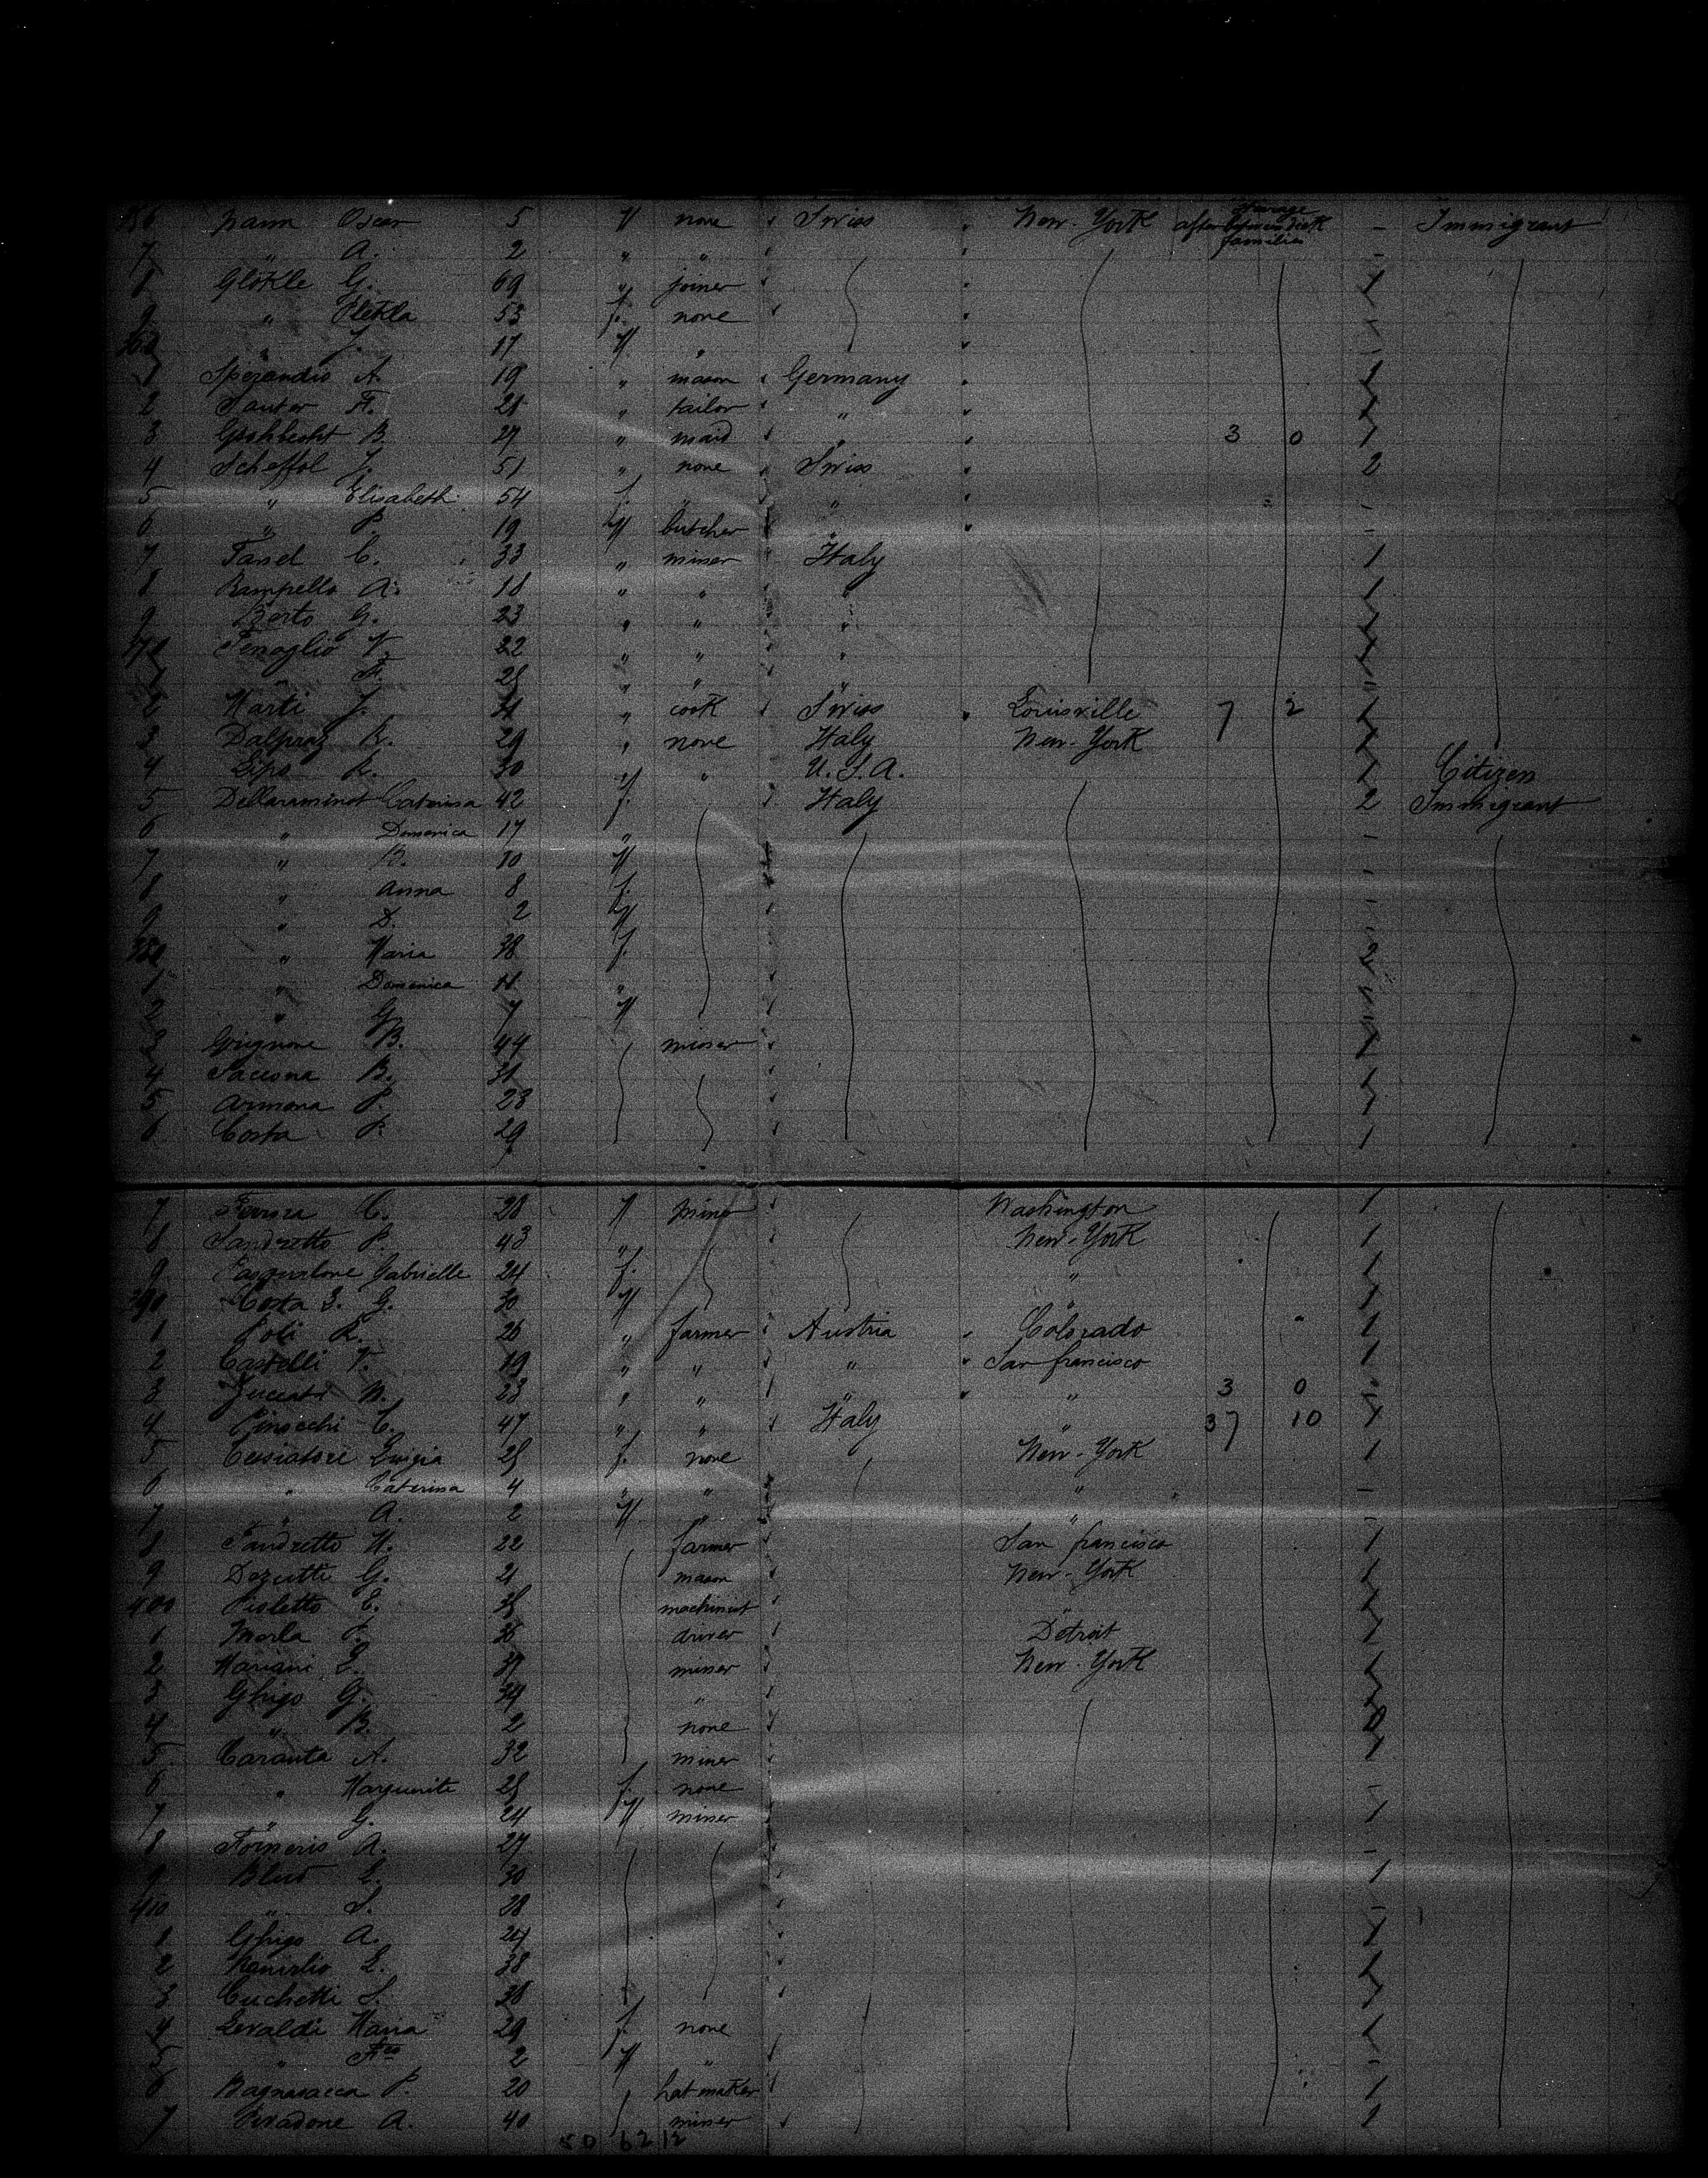 356 Mann Oscar 5 M none Swiss New-York Steerage Immigrant
after bemen deck
families
7 " A. 2 " "
8 Glökle G. 69 " joiner 1
9 " Thekla 53 f. none
360 " J. 17 M "
1 Sperandio A. 19 " mason Germany 1
2 Sauter F. 21 " tailor " 1
3 B. 27 " maid " 3 0 1
4 Scheffol J. 51 " none Swiss 2
5 " Elisabeth 54 f. " " -
6 " P. 19 M butcher " -
7 Tanel C. 33 " miner Italy 1
8 Rampello A. 18 " " " 1
9 Berto G. 23 " " " 1
70 Fenoglio V. 22 " " " 1
1 " F. 28 " " "
2 Marti J. 31 " cook Swiss Louisville 7 2 1
3 Dalpraz R. 29 " none Italy New-York 1
4 Lips R. 30 " " U.S.A. 1 Citizen
5 Caterina 42 f. Italy 2 Immigrant
6 " Domenica 17 " -
7 " B. 10 M -
8 " Anna 8 f. -
9 " D. 2 M -
380 " Maria 38 f. 2
1 " Domenica 11 "
2 " G. 7 M
3 Grignone B. 44 miner 1
4 Saccona B. 31 1
5 Armona P. 23 1
6 Costa P. 29 1
7 C. 28 M miner Washington 1
8 Sandretto P. 43 " New-York 1
9 Pasqualone Gabrielle 24 f. " 1
390 Costa G. G. 30 M " 1
1 Poli R. 26 " farmer Austria Colorado 1
2 Castelli V. 19 " " " San francisco 1
3 Zuccati N. 23 " " " " 3 0
4 Pinocchi C. 47 " " Italy " 37 10 1
5 Luigia 28 f. none New-York 1
6 " Caterina 4 " " " -
7 " A. 2 M " " -
8 Sandretto M. 22 farmer San francisco 1
9 Dezutti G. 21 mason New-York 1
400 Pioletto E. 38 machinist " 1
1 Morla F. 36 driver Detroit 1
2 Mariani E. 37 miner New-York 1
3 Ghigo G. 34 " 1
4 " B. 2 none 0
5 Caranta A. 32 miner 1
6 " Marguerite 28 f. none -
7 " G. 24 M miner 1
8 Forneris A. 27 -
9 E. 30 1
410 " S. 28 -
1 Ghigo A. 24 1
2 E. 38 1
3 Cuchetti S. 38 1
4 Levaldi Maria 29 f. none 1
5 " Fco 2 M " -
6 Bagnasacca P. 20 hat maker 1
7 A. 40 miner 1
50 62 12